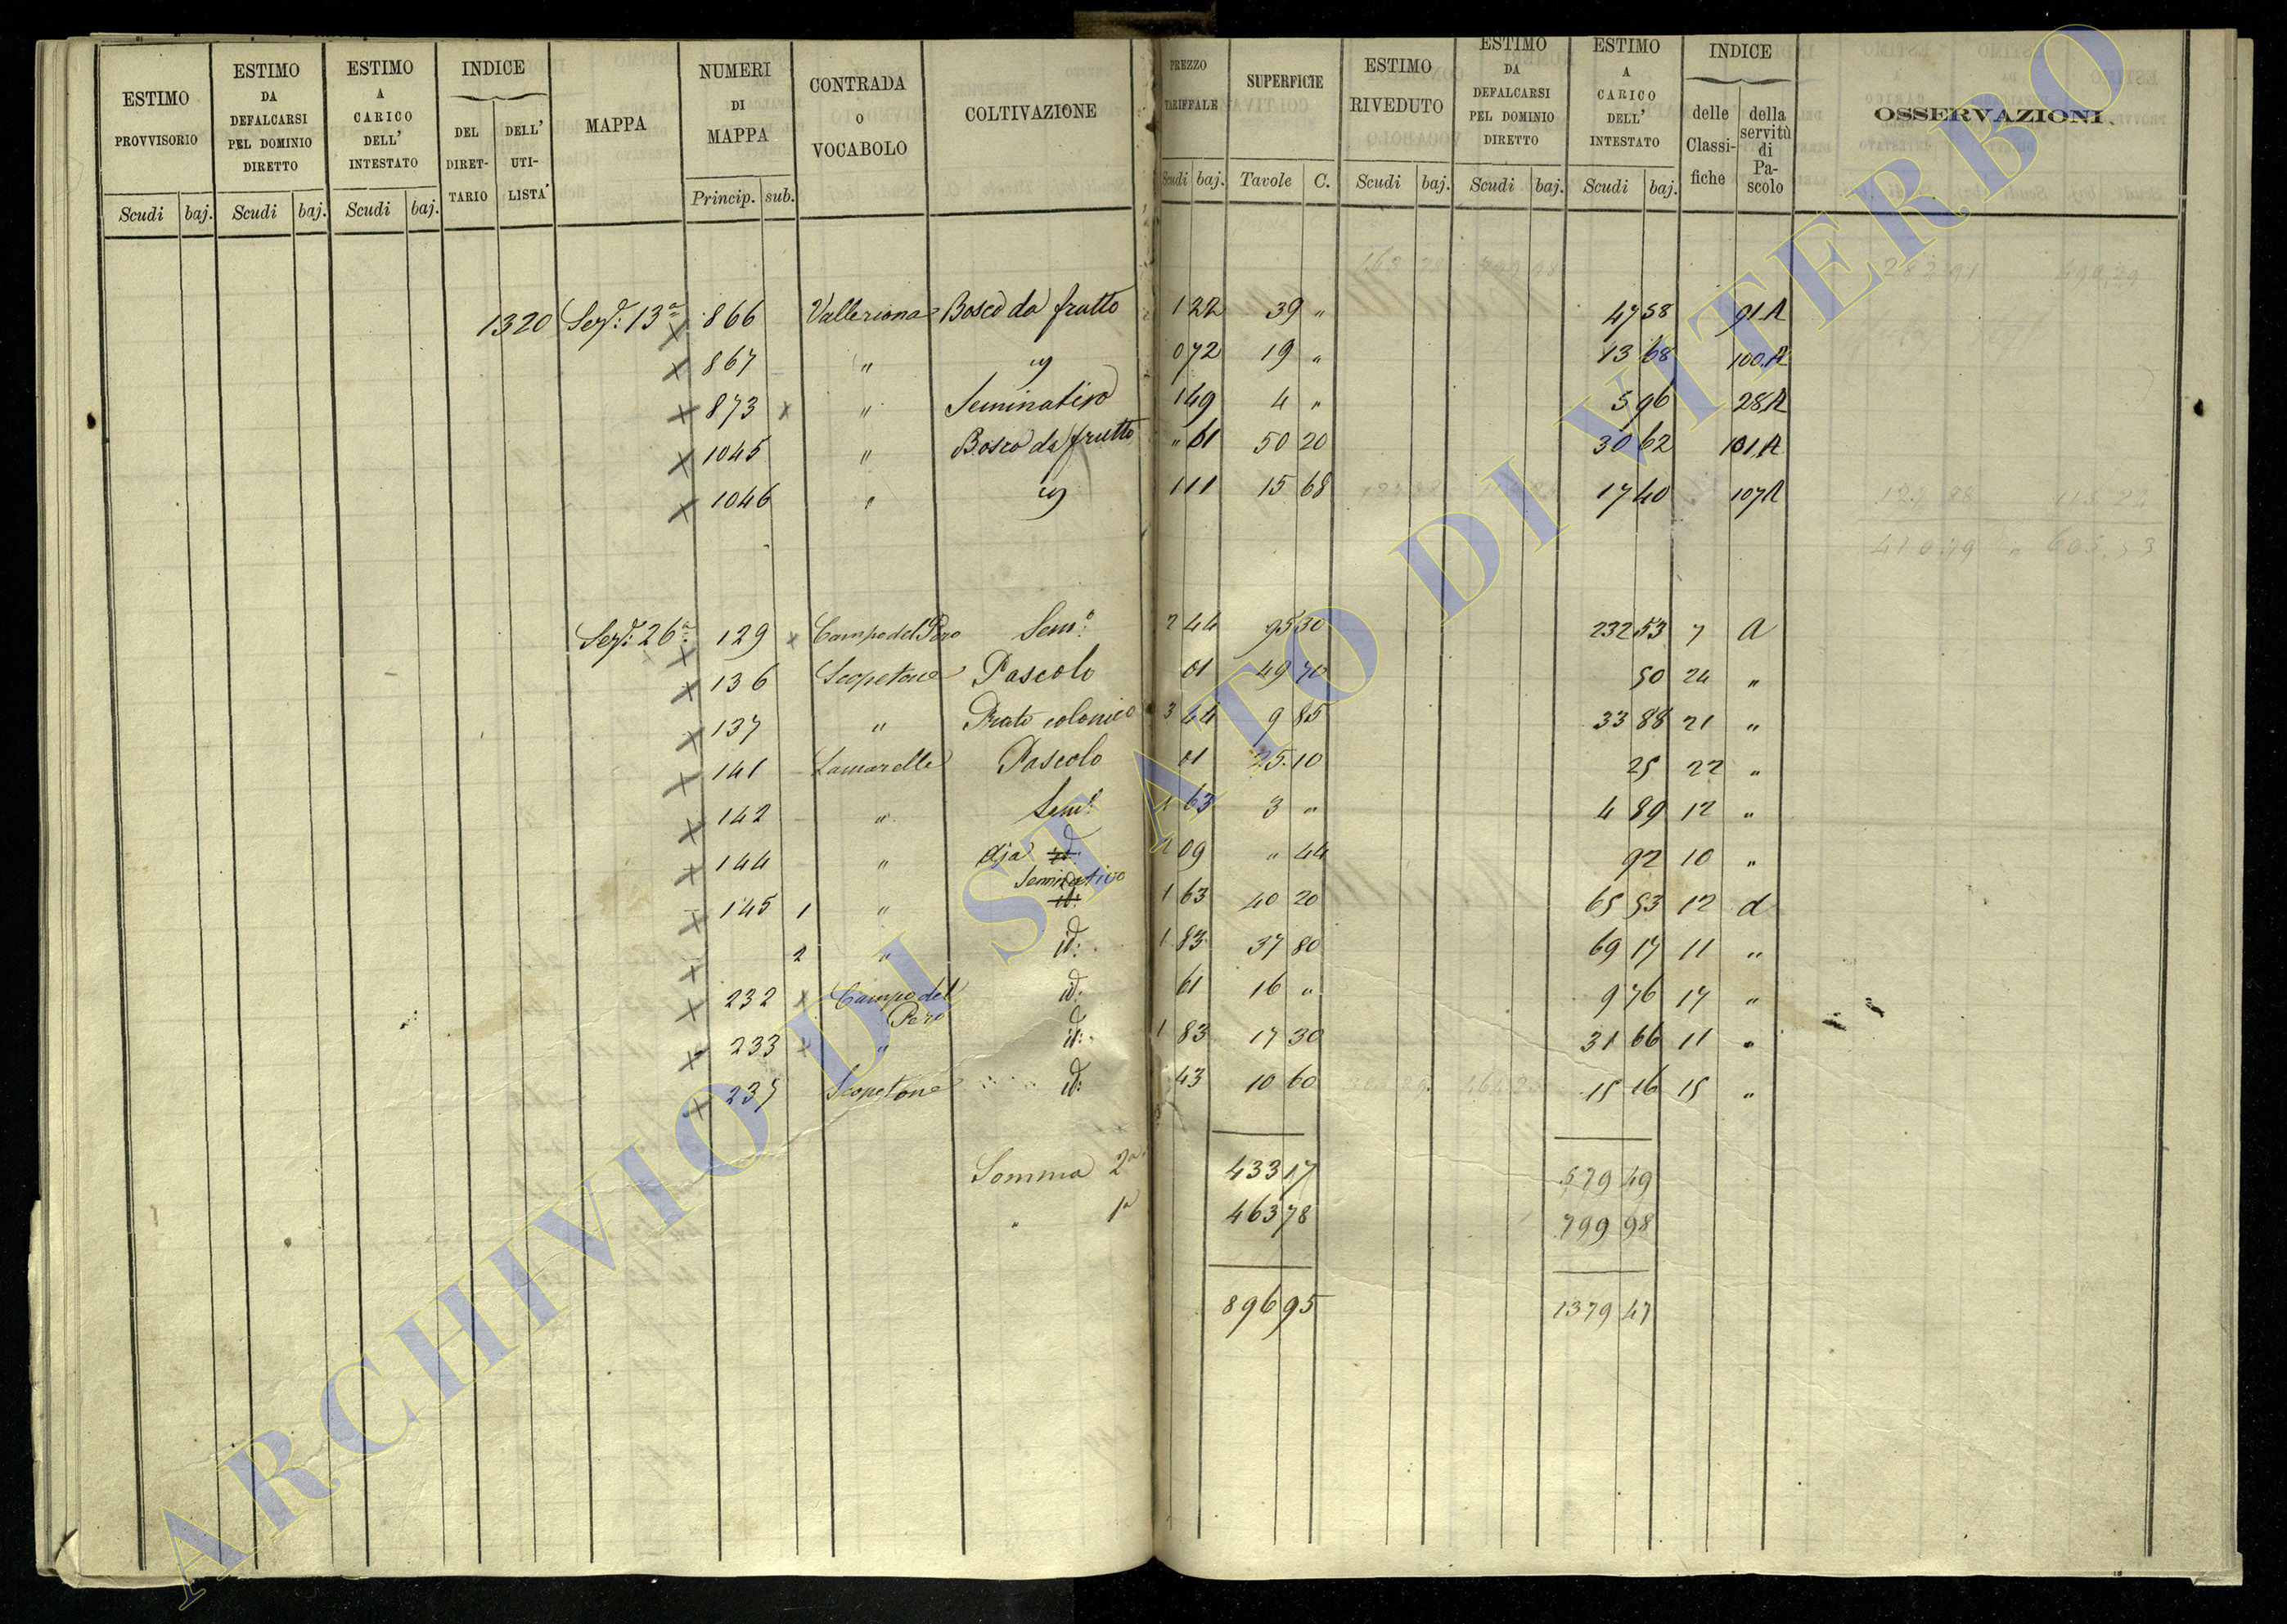 ESTIMO PROVVISORIO Scudi baj.
ESTIMO DA DEFALCARSI PEL DOMINIO DIRETTO Scudi baj.
ESTIMO A CARICO DELL' INTESTATO Scudi baj.
INDICE DEL DIRET-TARIO DELL' UTI-LISTA
MAPPA
NUMERI DI MAPPA Princip. sub.
CONTRADA O VOCABOLO
COLTIVAZIONE
PREZZO TARIFFALE Scudi baj.
SUPERFICIE Tavole C.
ESTIMO RIVEDUTO Scudi baj.
ESTIMO DA DEFALCARSI PEL DOMINIO DIRETTO Scudi baj.
ESTIMO A CARICO DELL' INTESTATO Scudi baj.
INDICE delle Classi-fiche della servitù di Pa-scolo
OSSERVAZIONI.
1320 Sez: 13ª x 866 Valleriona Bosco da frutto 1 22 39 " 47 58 91 A
x 867 " id 0 72 19 " 13 68 100 A
x 873 x " Seminativo 1 49 4 " 5 96 28 A
x 1045 " Bosco da frutto " 61 50 20 30 62 101 A
x 1046 " id 1 11 15 68 17 40 107 A
Sez: 26ª x 129 x Campo del Pero Sem: 2 44 95 30 232 53 7 A
x 136 Scopetone Pascolo 01 49 70 50 24 "
x 137 " Prato colonico 3 44 9 85 33 88 21 "
x 141 Lamarelle Pascolo 01 25 10 25 22 "
x 142 " Sem: 1 63 3 " 4 89 12 "
x 144 " Aja id: 2 09 " 44 92 10 "
Seminativo
x 145 1 " id: 1 63 40 20 65 53 12 d
x 2 " id: 1 83 37 80 69 17 11 "
x 232 x Campo del Pero id: 61 16 " 9 76 17 "
x 233 x " id: 1 83 17 30 31 66 11 "
x 235 Scopetone id: 1 43 10 60 15 16 15 "
Somma 2ª 433 17 579 49
" 1ª 463 78 799 98
896 95 1379 47
ARCHIVIO DI STATO DI VITERBO